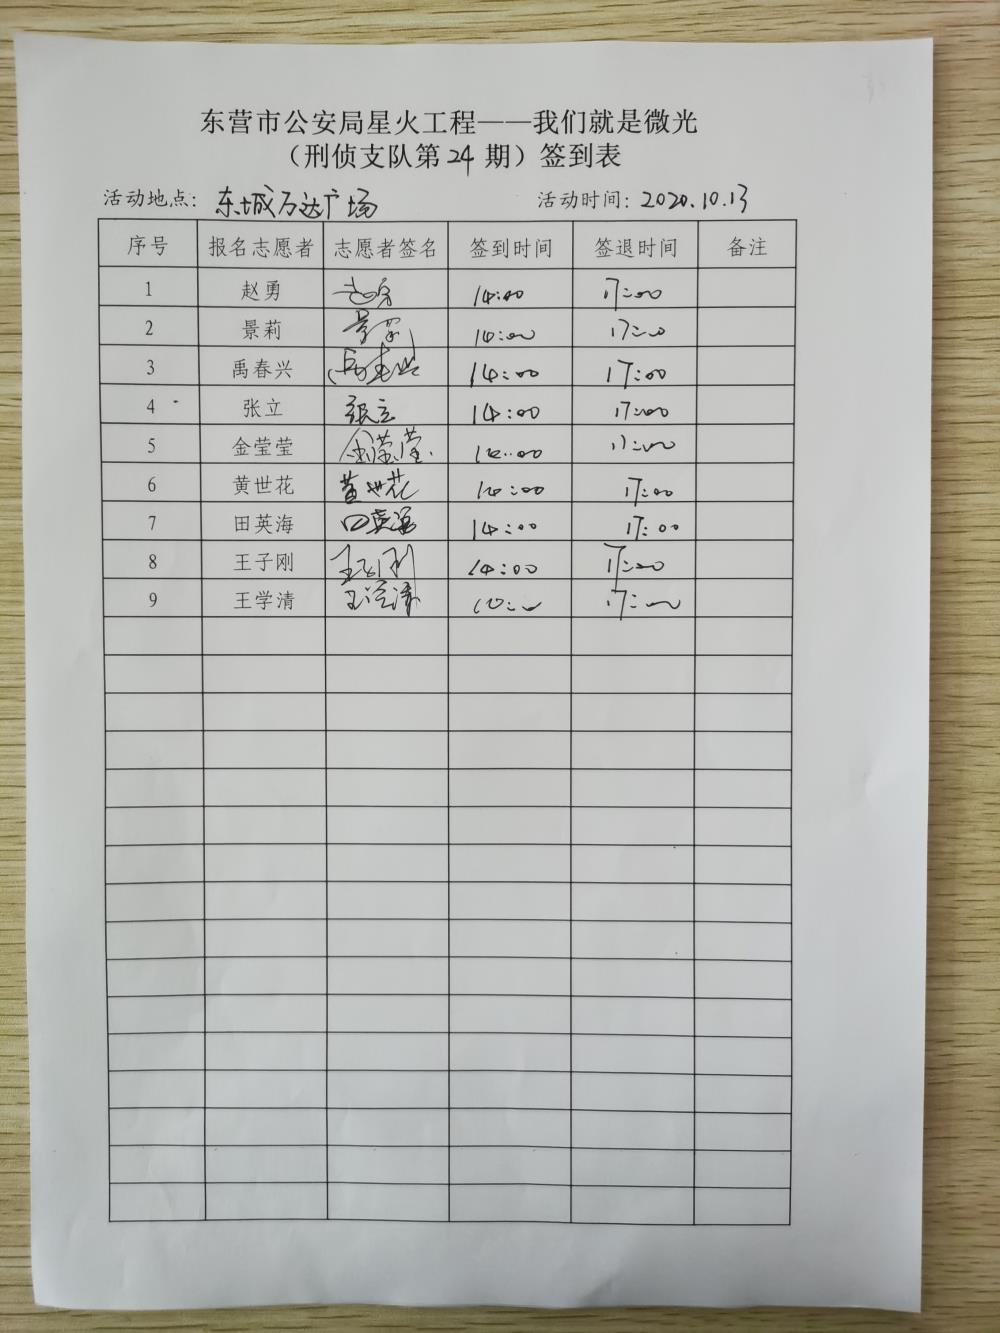 东营市公安局星火工程——我们就是微光
（刑侦支队第24期）签到表
活动地点：东城万达广场 活动时间：2020.10.13
序号 报名志愿者 志愿者签名 签到时间 签退时间 备注
1 赵勇 赵勇 14:00 17:00
2 景莉 景莉 14:00 17:00
3 禹春兴 禹春兴 14:00 17:00
4 张立 张立 14:00 17:00
5 金莹莹 金莹莹 14:00 17:00
6 黄世花 黄世花 14:00 17:00
7 田英海 田英海 14:00 17:00
8 王子刚 王子刚 14:00 17:00
9 王学清 王学清 14:00 17:00